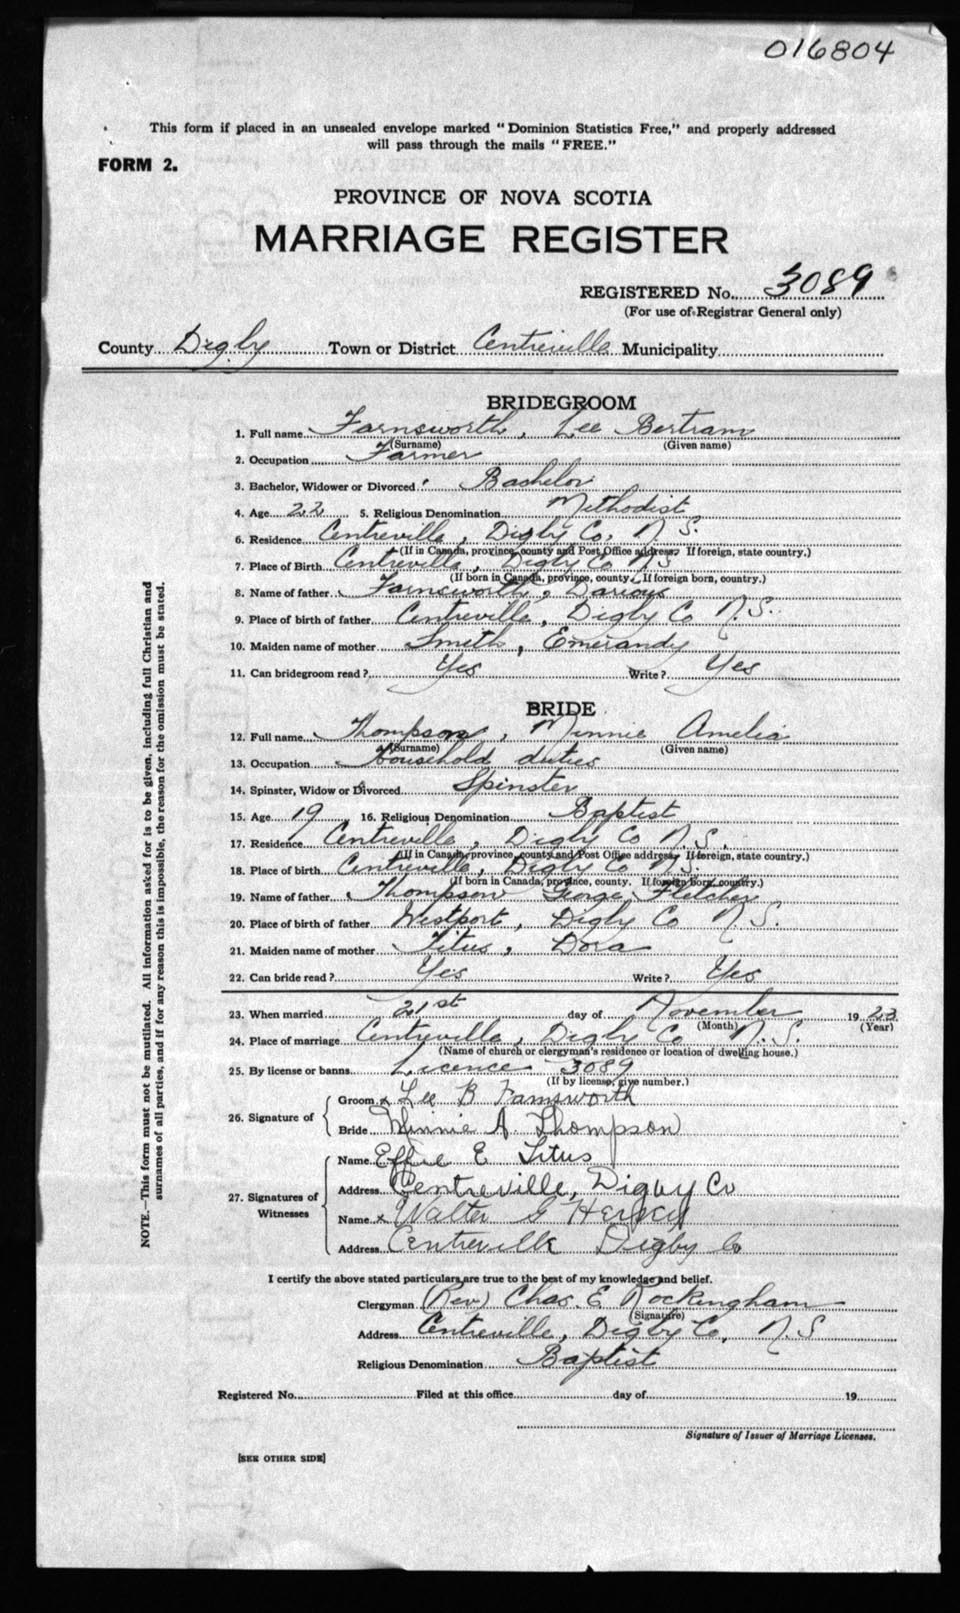 016804
This form if placed in an unsealed envelope marked "Dominion Statistics Free," and properly addressed
will pass through the mails "FREE."
FORM 2.
PROVINCE OF NOVA SCOTIA
MARRIAGE REGISTER
REGISTERED No. 3089
(For use of Registrar General only)
County Digby Town or District Centreville Municipality
BRIDEGROOM
1. Full name Farnsworth, Lee Bertram
(Surname) (Given name)
2. Occupation Farmer
3. Bachelor, Widower or Divorced Bachelor
4. Age 22 5. Religious Denomination Methodist
6. Residence Centreville, Digby Co, N.S.
(If in Canada, province, county and Post Office address. If foreign, state country.)
7. Place of Birth Centreville, Digby Co NS
(If born in Canada, province, county. If foreign born, country.)
8. Name of father Farnsworth, Darious
9. Place of birth of father Centreville, Digby Co N.S.
10. Maiden name of mother Smith, Emerandy
11. Can bridegroom read? Yes Write? Yes
BRIDE
12. Full name Thompson, Minnie Amelia
(Surname) (Given name)
13. Occupation Household duties
14. Spinster, Widow or Divorced Spinster
15. Age 19 16. Religious Denomination Baptist
17. Residence Centreville, Digby Co N.S.
(If in Canada, province, county and Post Office address. If foreign, state country.)
18. Place of birth Centreville, Digby Co N.S.
(If born in Canada, province, county. If foreign born, country.)
19. Name of father Thompson George Fletcher
20. Place of birth of father Westport, Digby Co N.S.
21. Maiden name of mother Titus, Dora
22. Can bride read? Yes Write? Yes
23. When married 21st day of November 1923
(Month) (Year)
24. Place of marriage Centreville, Digby Co N.S.
(Name of church or clergyman's residence or location of dwelling house.)
25. By license or banns Licence 3089
(If by license, give number.)
26. Signature of
Groom x Lee B Farnsworth
Bride Minnie A. Thompson
27. Signatures of Witnesses
Name Effie E Titus
Address Centreville, Digby Co
Name x Walter G
Address Centreville Digby Co
I certify the above stated particulars are true to the best of my knowledge and belief.
Clergyman (Rev) Chas. E Rockingham
(Signature)
Address Centreville, Digby Co, N.S
Religious Denomination Baptist
Registered No. Filed at this office day of 19
Signature of Issuer of Marriage Licenses.
[SEE OTHER SIDE]
NOTE.—This form must not be mutilated. All information asked for is to be given, including full Christian and
surnames of all parties, and if for any reason this is impossible, the reason for the omission must be stated.